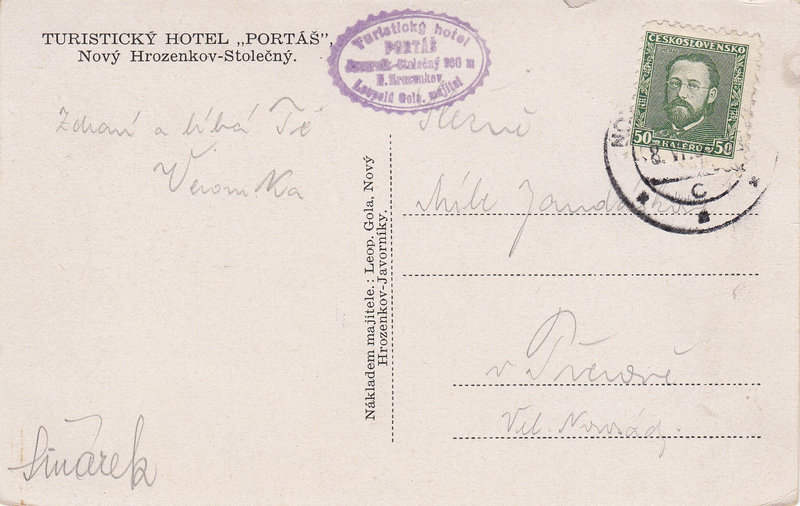 TURISTICKÝ HOTEL „PORTÁŠ”,
Nový Hrozenkov-Stolečný.
Turistický hotel
PORTÁŠ
Javorník-Stolečný 960 m
N. Hrozenkov.
Leopold Gola, majitel
ČESKOSLOVENSKO
50 HALÉŘŮ 50
NO
8. VI.
C
Zdraví a líbá Tě
Veronika
Slečně
Mile
v Přerově
Vel. Novosády.
Nákladem majitele.: Leop. Gola, Nový
Hrozenkov-Javorníky.